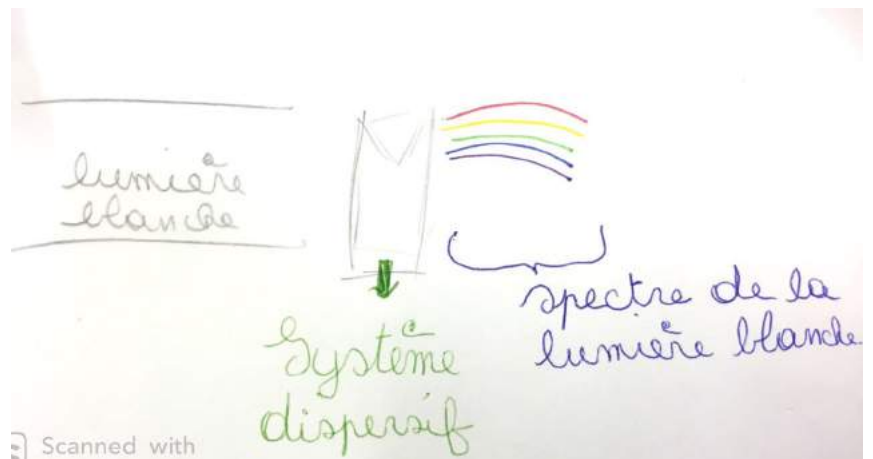 lumière
blanche
Système
dispersif
spectre de la
lumière blanche
Scanned with